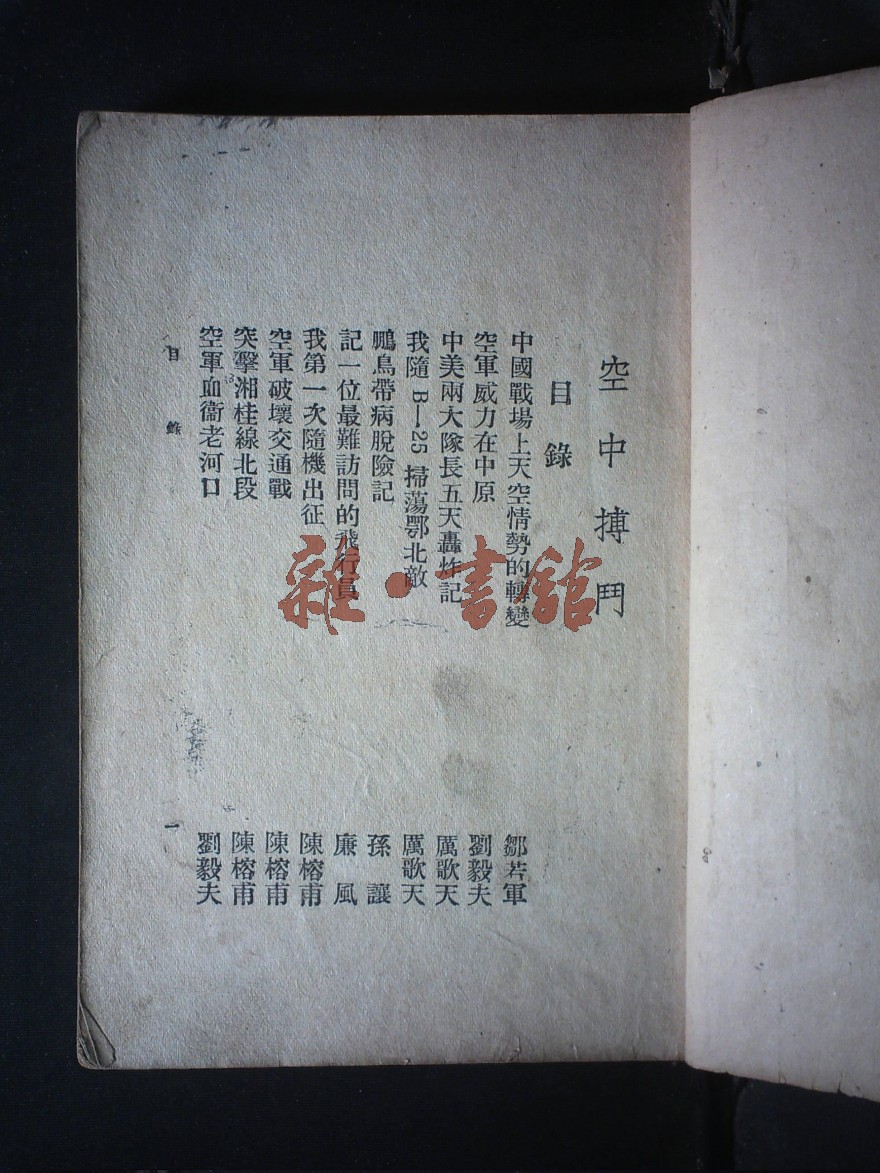 空中搏鬥
目錄
中國戰場上天空情勢的轉變 鄒若軍
空軍威力在中原 劉毅夫
中美兩大隊長五天轟炸記 厲歌天
我隨B—25掃蕩鄂北敵 厲歌天
鵬鳥帶病脫險記 孫讓
記一位最難訪問的飛行員 廉風
我第一次隨機出征 陳榕甫
空軍破壞交通戰 陳榕甫
突擊湘桂線北段 陳榕甫
空軍血衞老河口 劉毅夫
目錄 一
雜·書館